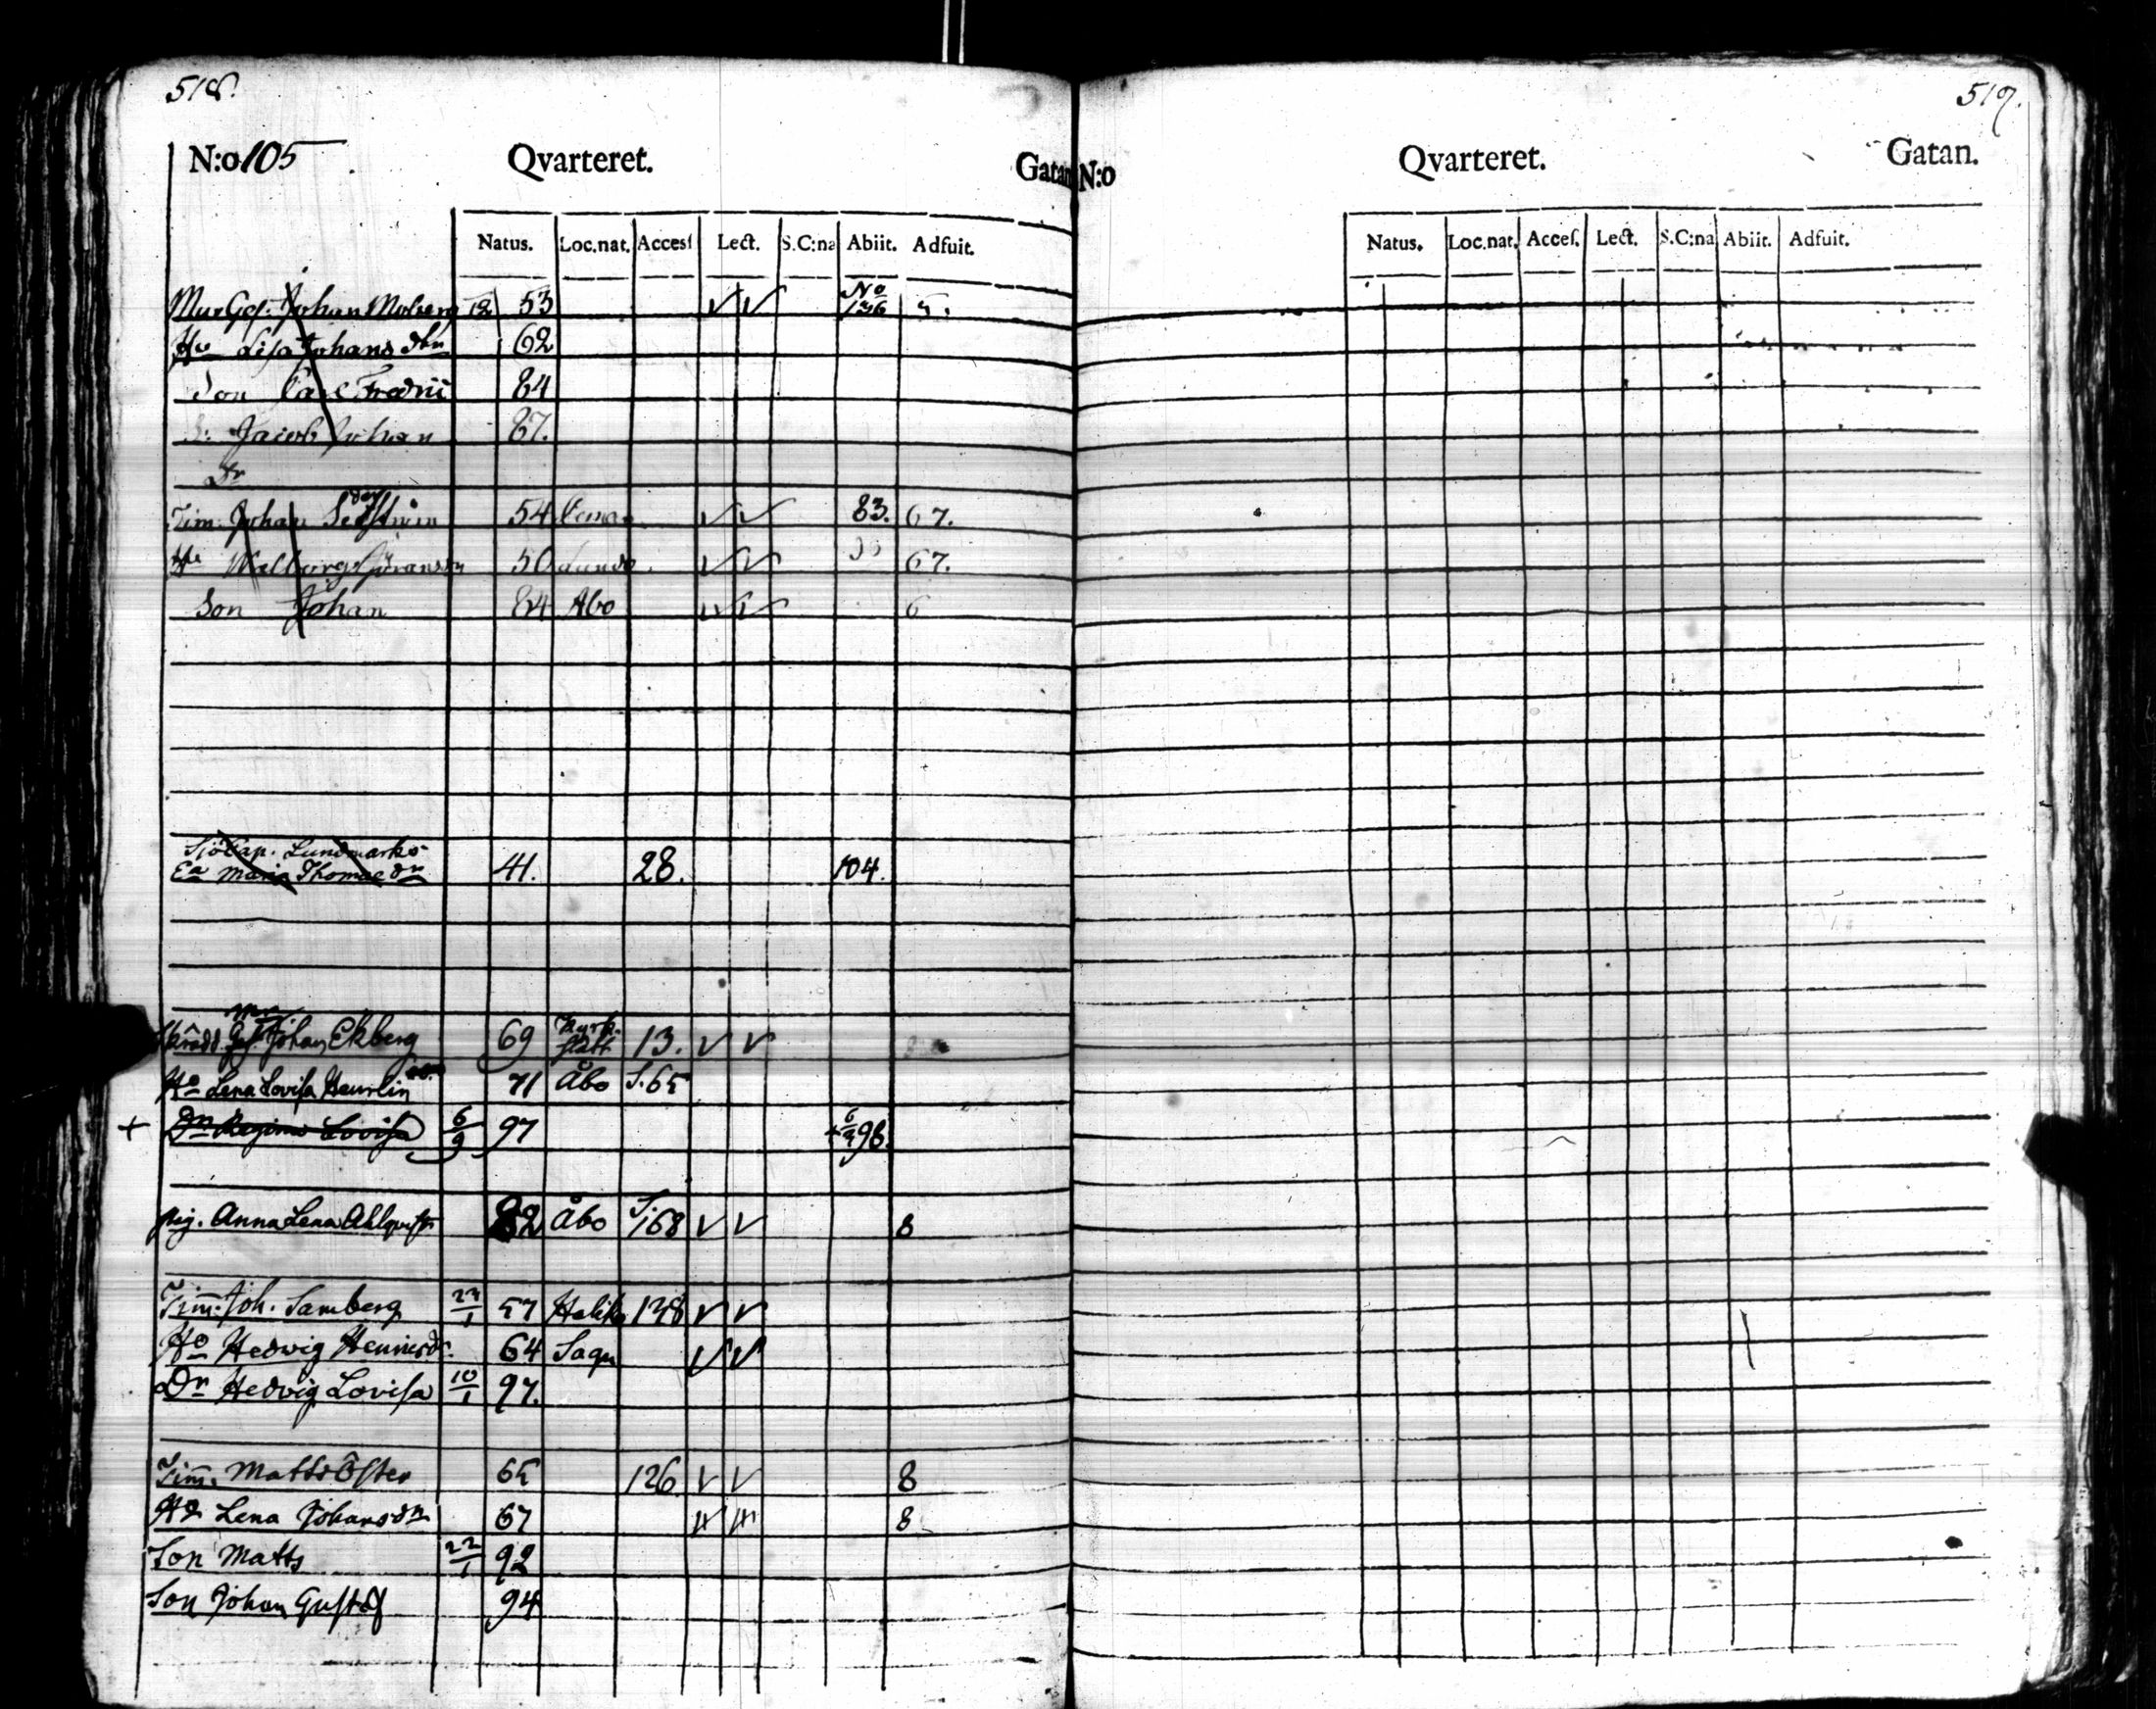 518.
N:o 105 Qvarteret. Gatan
Natus. Loc.nat. Accesſ Lect. S.C:na Abiit. Adfuit.
Mur Ges. Johan Moberg 12 53 No 136 5.
Ho Lisa Johans dtr 62
Son Carl Fredric 84
S: Jacob Johan 87.
Dr
Tim. Johan 54 83. 67.
Ho Walborg Göransdr 50 67.
Son Johan 84 Åbo 6
Sjökap. Lundmarks
Ea Maria Thomædr 41. 28. 104.
Skrädd. Ges. Johan Ekberg 69 Kyrkslätt 13.
Ho Lena Lovisa Heurlin 71 Åbo S.65
+ Dr Regina Lovisa 6/9 97 + 6/9 98.
pig. Anna Lena Ahlqvist 82 Åbo S.168 8
Tim̄. Joh. Samberg 23/1 57 Haliko 138
Ho Hedwig Henricsdr. 64 Sagu
Dr Hedvig Lovisa 10/1 97.
Tim̄. Matts Öster 65 126 8
Ho Lena Johansdr 67 8
Son Matts 22/1 92
Son Johan Gustaf 94
519.
N:o Qvarteret. Gatan.
Natus. Loc.nat. Acceſ. Lect. S.C:na Abiit. Adfuit.